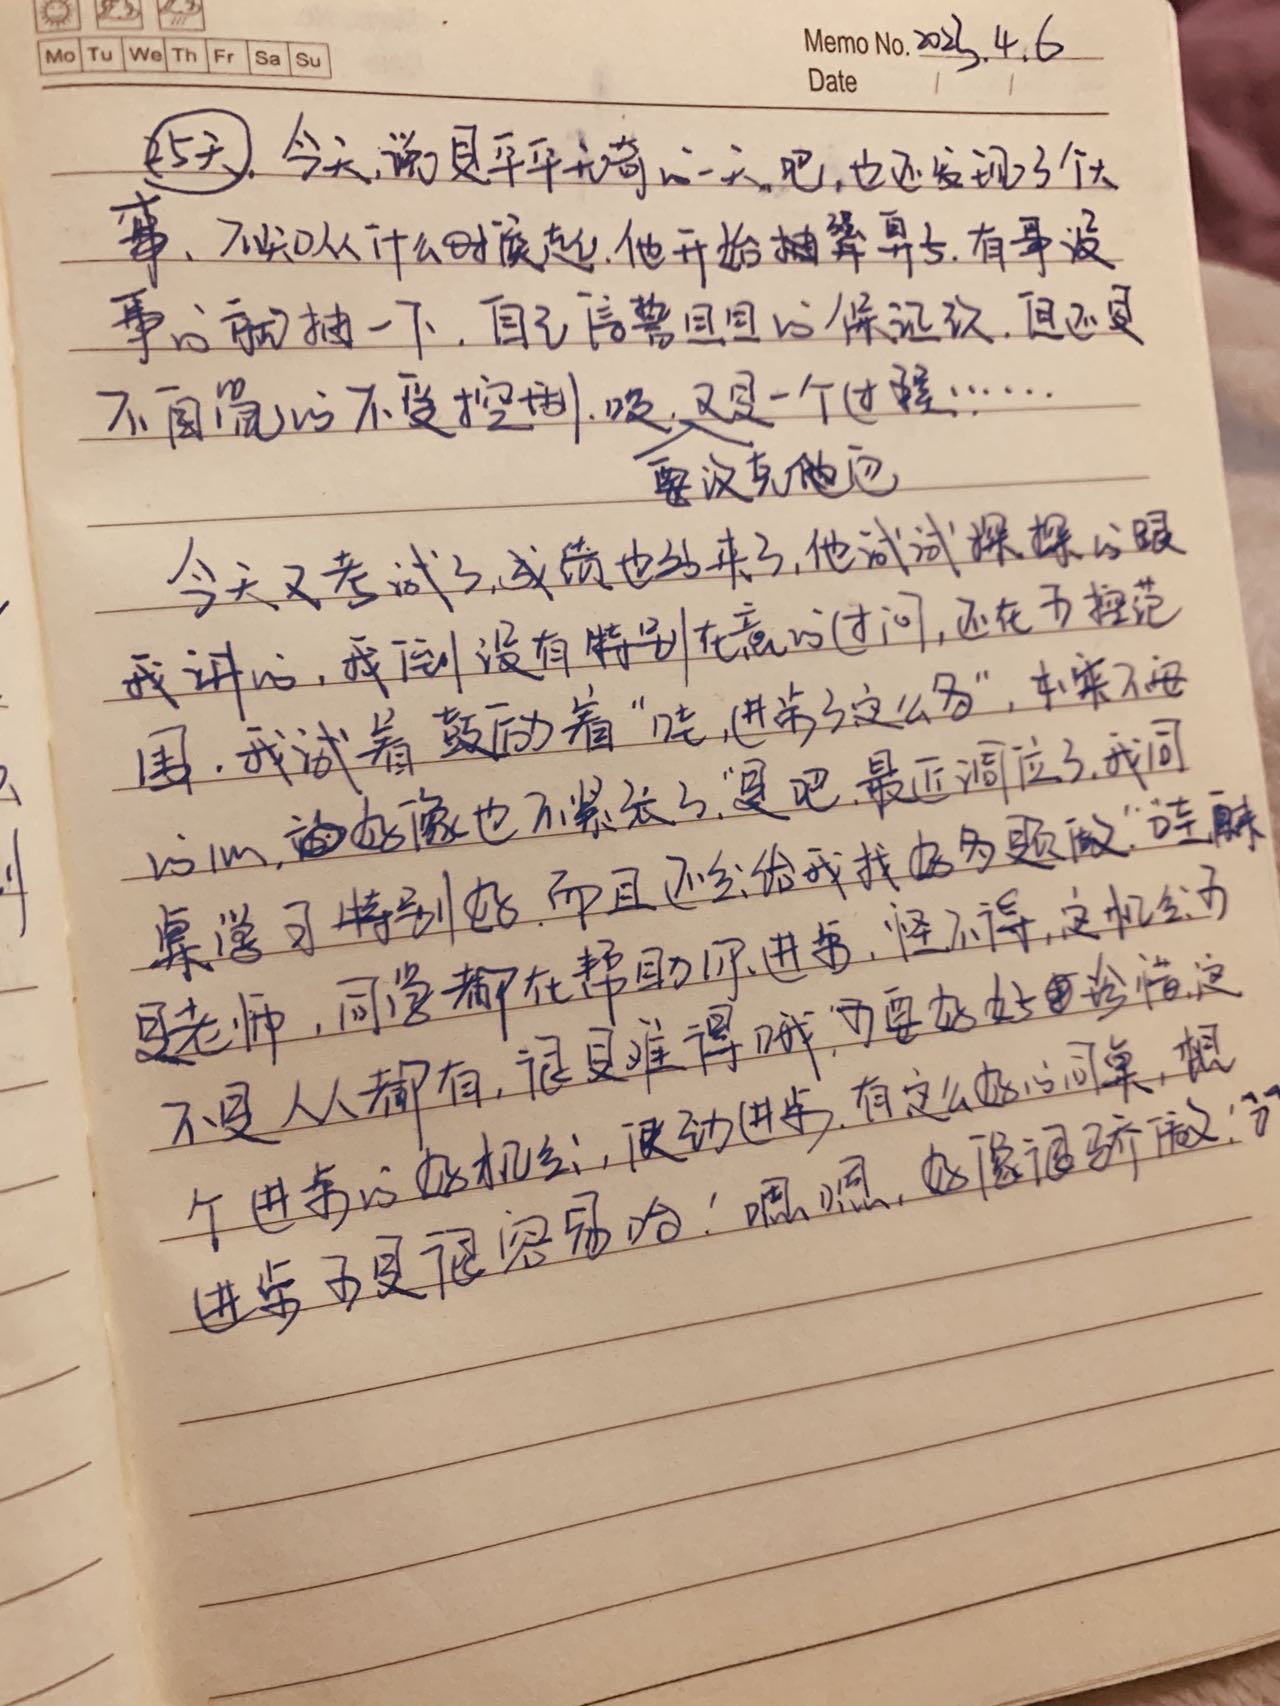 Mo Tu We Th Fr Sa Su
Memo No. 2023.4.6
Date
25天. 今天,说是平平无奇的一天吧,也还发现了个大
事、不知从什么时候起.他开始抽鼻子.有事没
事的就抽一下.自己信誓旦旦的保证说.但还是
不自觉的不受控制.哎.又是一个过程……
要汉克他
今天又考试了,成绩也出来了,他试试探探的跟
我讲的,我倒没有特别在意的过问,还在可控范
围.我试着鼓励着“哇,进步了这么多”,本来不安
的心,好像也不紧张了.“是吧.最近调位了.我同
桌学习特别好.而且还会给我找好多题做.”“哇
是老师,同学都在帮助你进步.怪不得,这机会可
不是人人都有,很是难得哦,可要好好珍惜这
个进步的好机会,互动进步.有这么好的同桌,想
进步可是很容易哈!”嗯嗯.好像很骄傲.